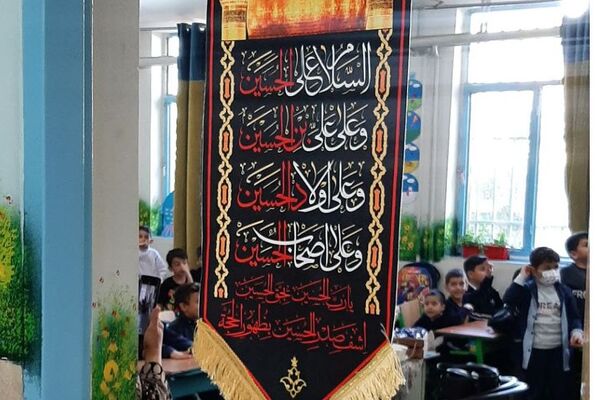 السلام علی الحسین
وعلی علی بن الحسین
وعلی اولاد الحسین
وعلی اصحاب الحسین
یارب الحسین بحق الحسین
اشف صدر الحسین بظهور الحجة